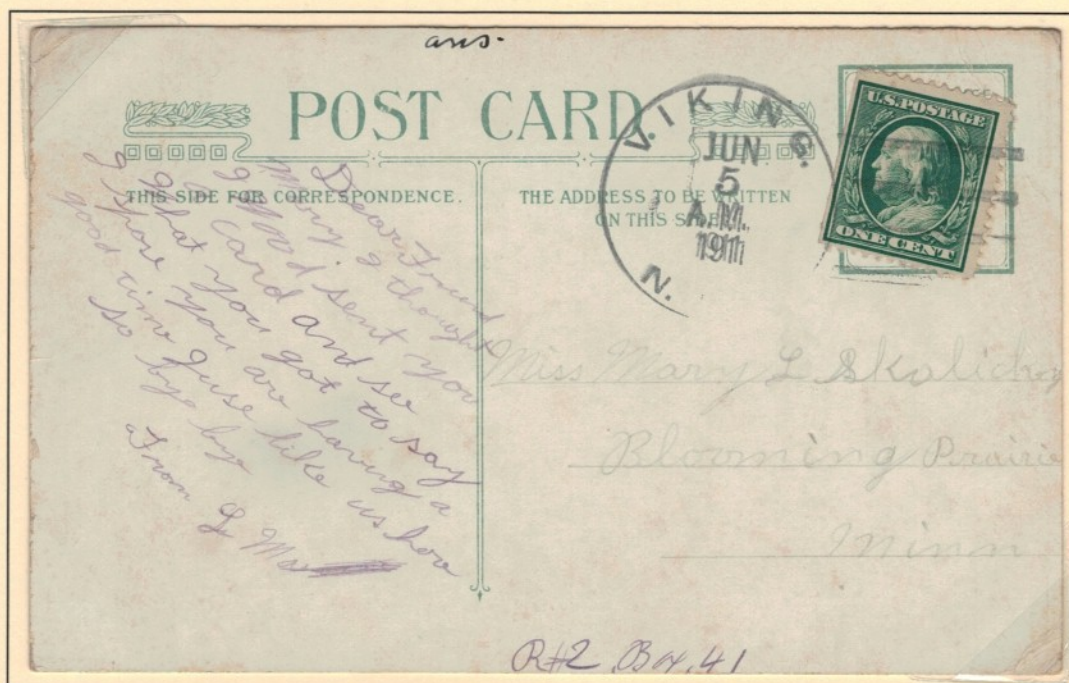 ans.
POST CARD.
THIS SIDE FOR CORRESPONDENCE.
THE ADDRESS TO BE WRITTEN
ON THIS SIDE
VIKING.
JUN
5
A.M.
1911
N.
U.S. POSTAGE
ONE CENT
Dear Friend
Mary. I thought
I sent you
a card and see
what you got to say
I spose you are having a
good time juse like us here
so bye bye
From L
Miss Mary L Skalickey
Blooming Prairie
Minn
R#2 Box. 41